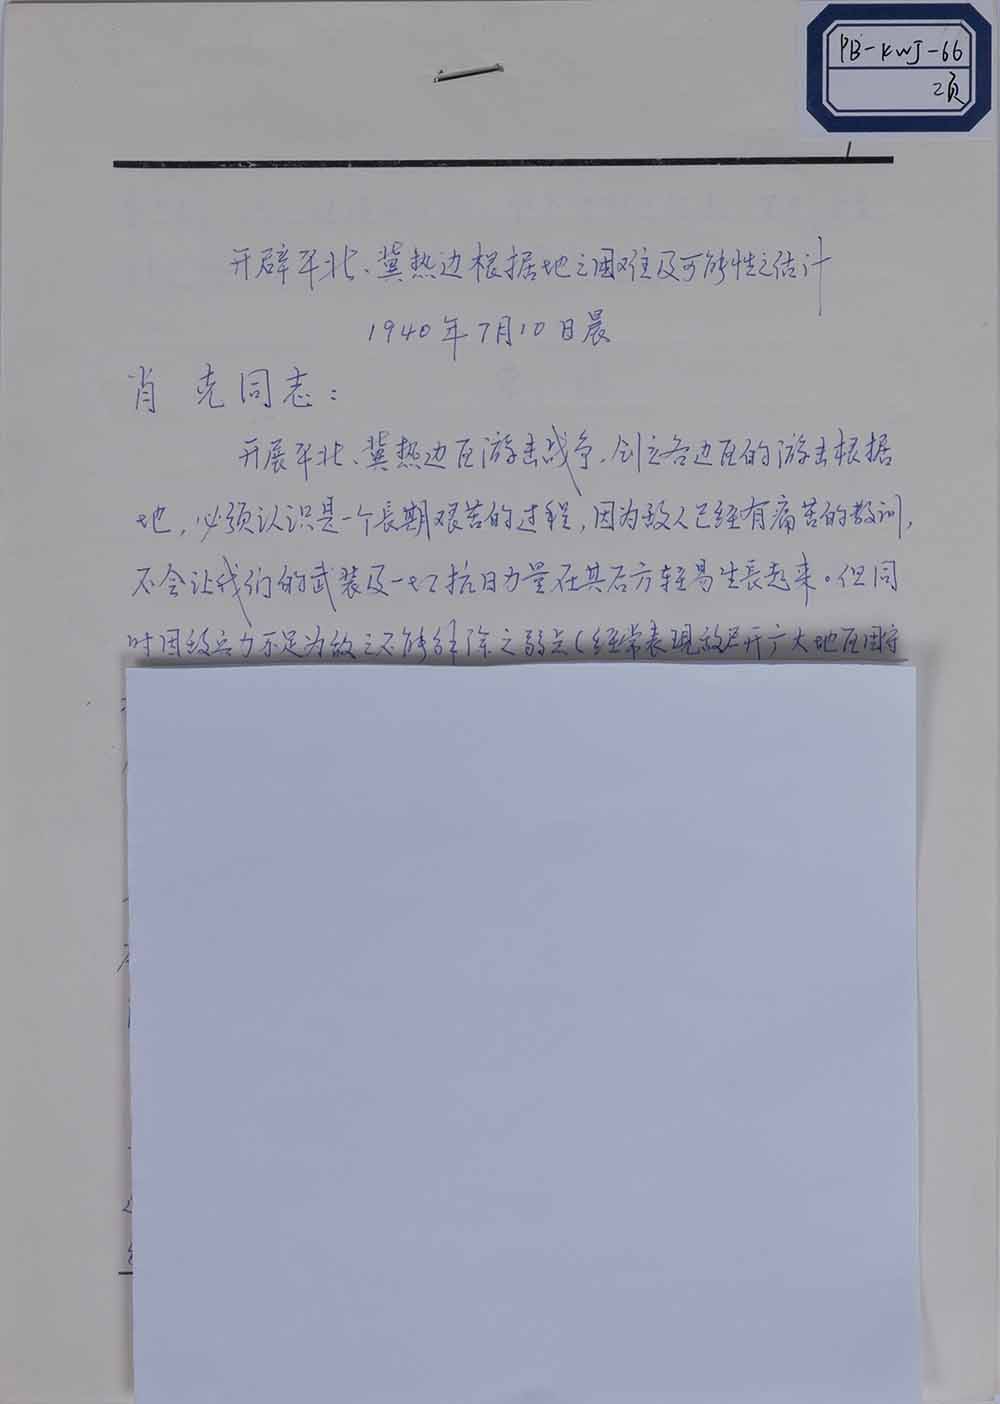 PB-KWJ-66
2页
1
开辟平北、冀热边根据地之困难及可能性之估计
1940年7月10日晨
肖克同志：
开展平北、冀热边区游击战争，创立各边区的游击根据
地，必须认识是一个長期艰苦的过程，因为敌人已经有痛苦的教训，
不会让我们的武装及一切抗日力量在其后方轻易生長起来。但同
时因敌兵力不足为敌之不能解除之弱点（经常表現敌后开广大地区困守